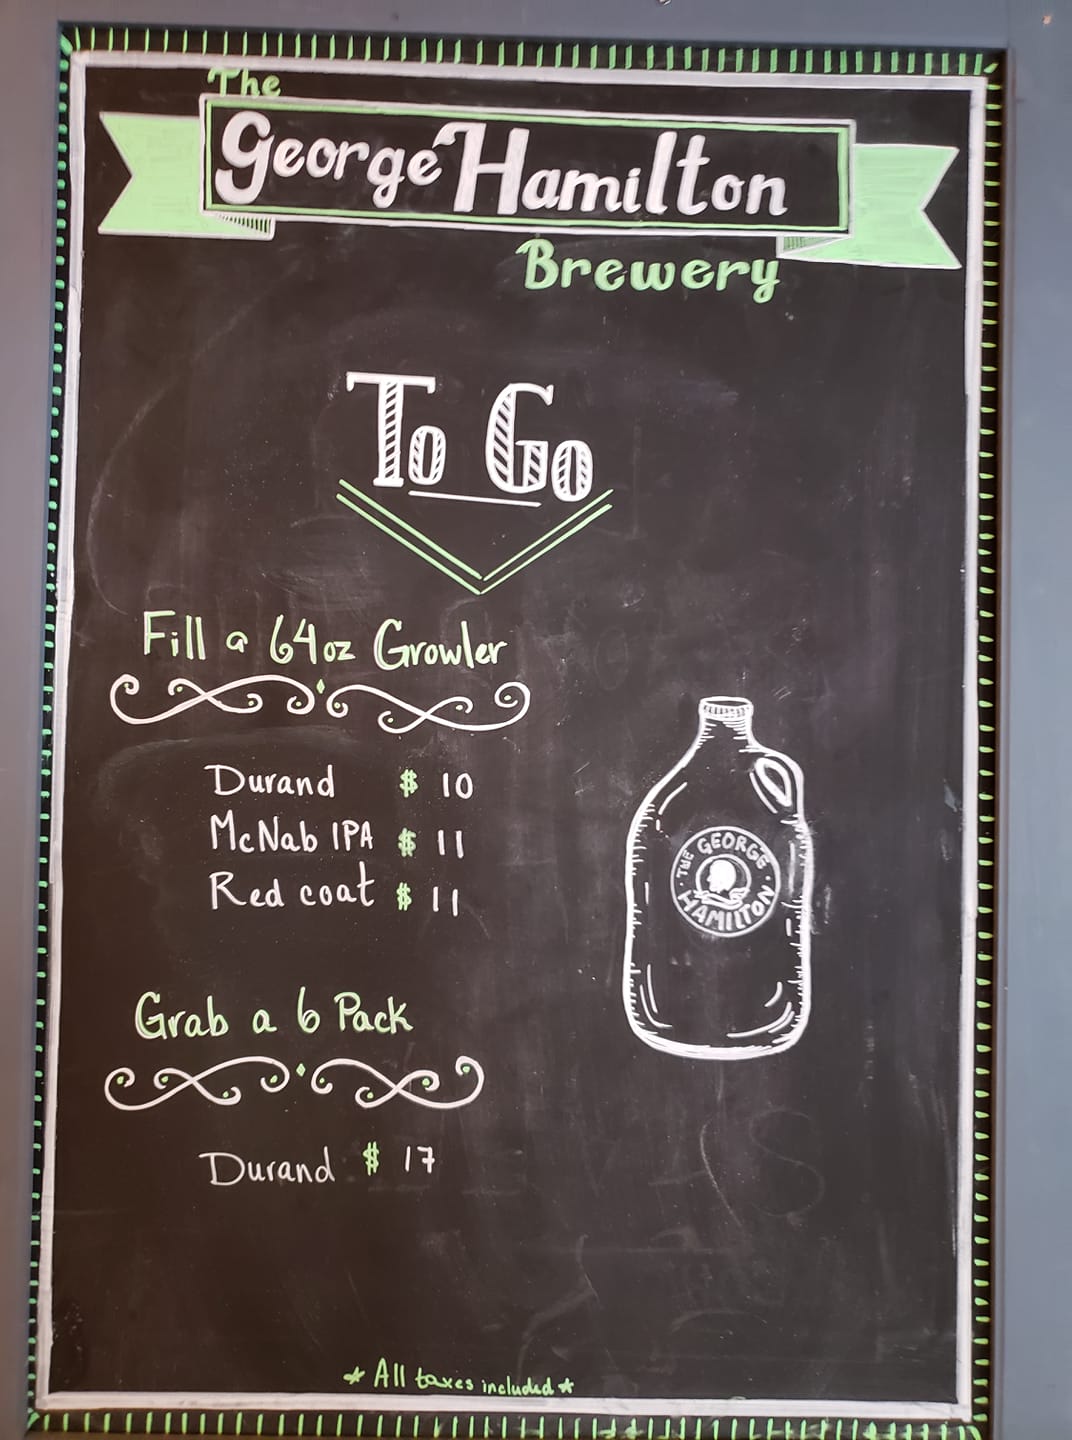 The
George Hamilton
Brewery
To Go
Fill a 64oz Growler
Durand $ 10
McNab IPA $ 11
Red coat $ 11
THE GEORGE
HAMILTON
Grab a 6 Pack
Durand $ 17
* All taxes included *